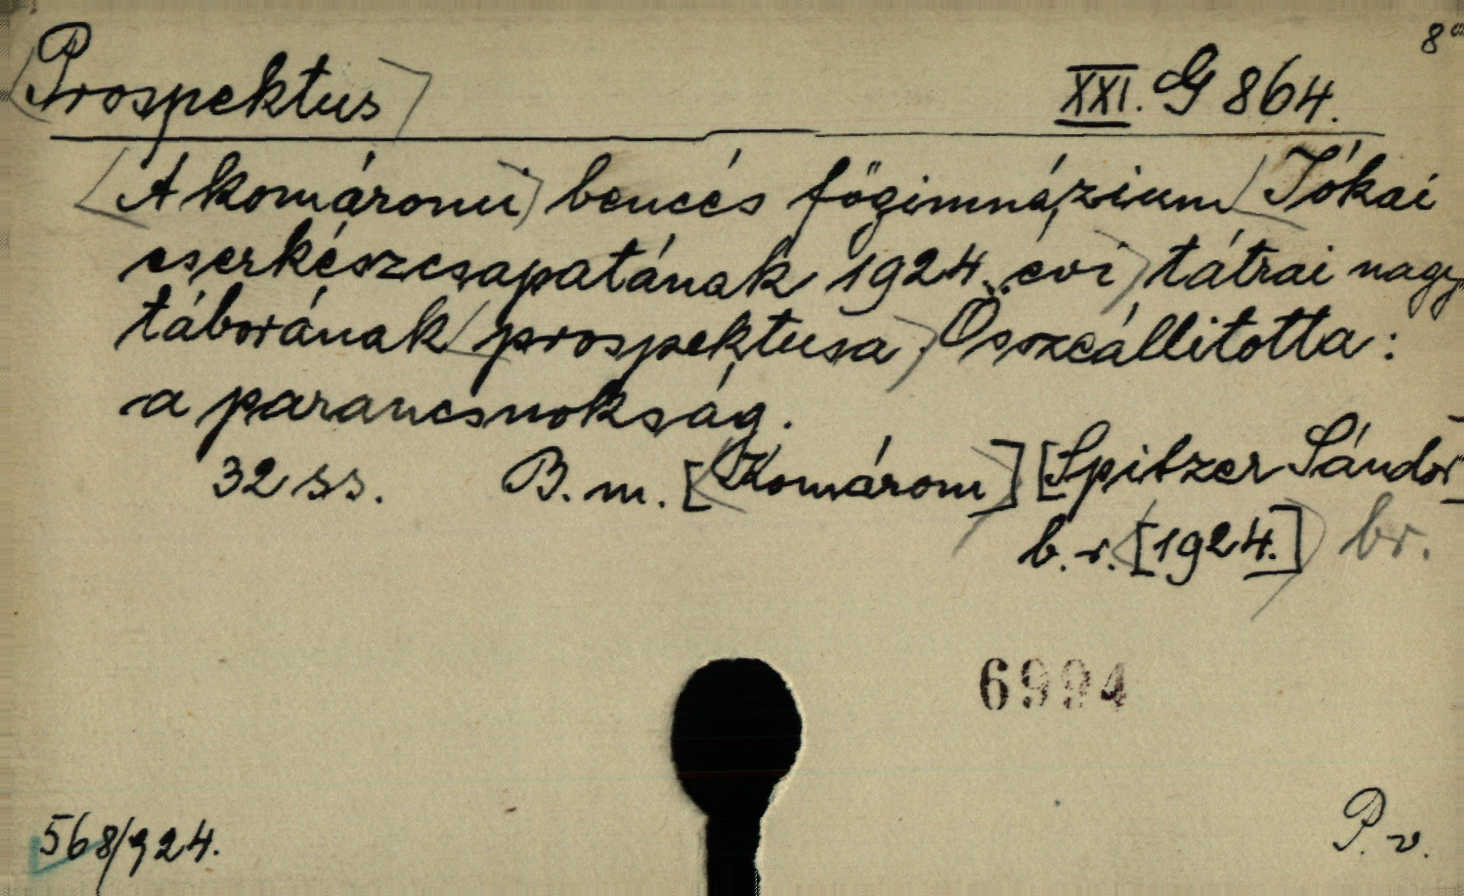 8°
Prospektus XXI. G 864.
A komáromi bencés főgimnázium Jókai
cserkészcsapatának 1924. évi tátrai nagy
táborának prospektusa. Összeállította:
a parancsnokság.
32 ss. B. m. [Komárom] [Spitzer Sándor]
b. r. [1924.] br.
6994
568/924. P. v.